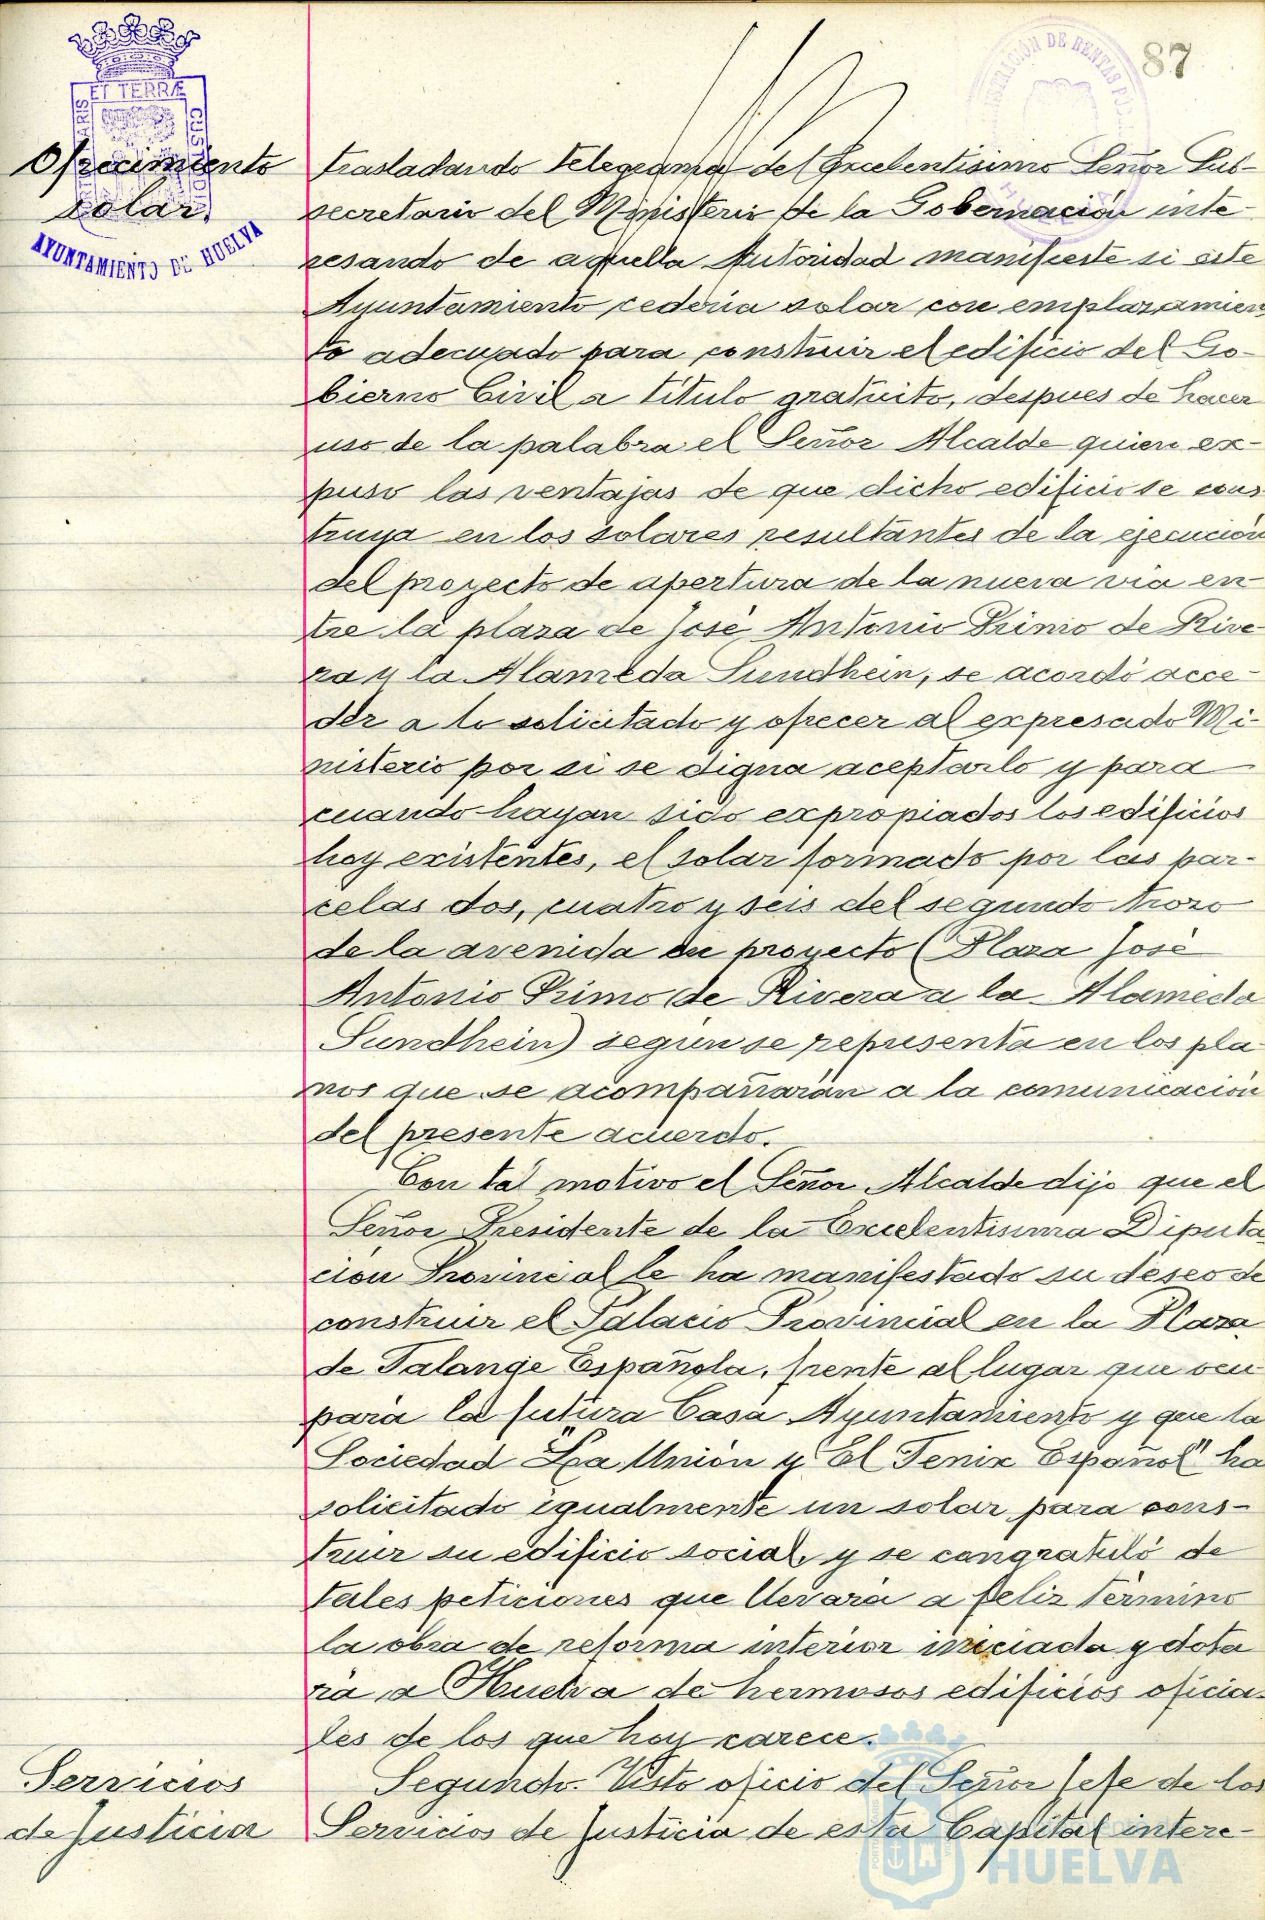 87
ET TERRÆ
CUSTODIA
Ofrecimiento
solar.
AYUNTAMIENTO DE HUELVA
trasladando telegrama del Excelentisimo Señor Sub-
secretario del Ministerio de la Gobernación inte-
resando de aquella Autoridad manifieste si este
Ayuntamiento cederia solar con emplazamien
to adecuado para construir el edificio del Go-
bierno Civil a titulo gratuito, despues de hacer
uso de la palabra el Señor Alcalde quien ex-
puso las ventajas de que dicho edificio se cons
truya en los solares resultantes de la ejecución
del proyecto de apertura de la nueva via en-
tre la plaza de José Antonio Primo de Rive
ra y la Alameda Sundhein, se acordó acce-
der a lo solicitado y ofrecer al expresado Mi-
nisterio por si se digna aceptarlo y para
cuando hayan sido expropiados los edificios
hoy existentes, el solar formado por las par-
celas dos, cuatro y seis del segundo trozo
de la avenida en proyecto (Plaza José
Antonio Primo de Rivera a la Alameda
Sundhein) según se representa en los pla
nos que se acompañarán a la comunicación
del presente acuerdo.
Con tal motivo el Señor Alcalde dijo que el
Señor Presidente de la Excelentisima Diputa
ción Provincial le ha manifestado su deseo de
construir el Palacio Provincial en la Plaza
de Falange Española, frente al lugar que ocu
para la futura Casa Ayuntamiento y que la
Sociedad "La Unión y El Fenix Español" ha
solicitado igualmente un solar para cons-
truir su edificio social, y se congratuló de
tales peticiones que llevará a feliz término
la obra de reforma interior iniciada y dota
rá a Huelva de hermosos edificios oficia-
les de los que hoy carece.
Servicios
de Justicia
Segundo. Visto oficio del Señor Jefe de los
Servicios de Justicia de esta Capital intere-
HUELVA